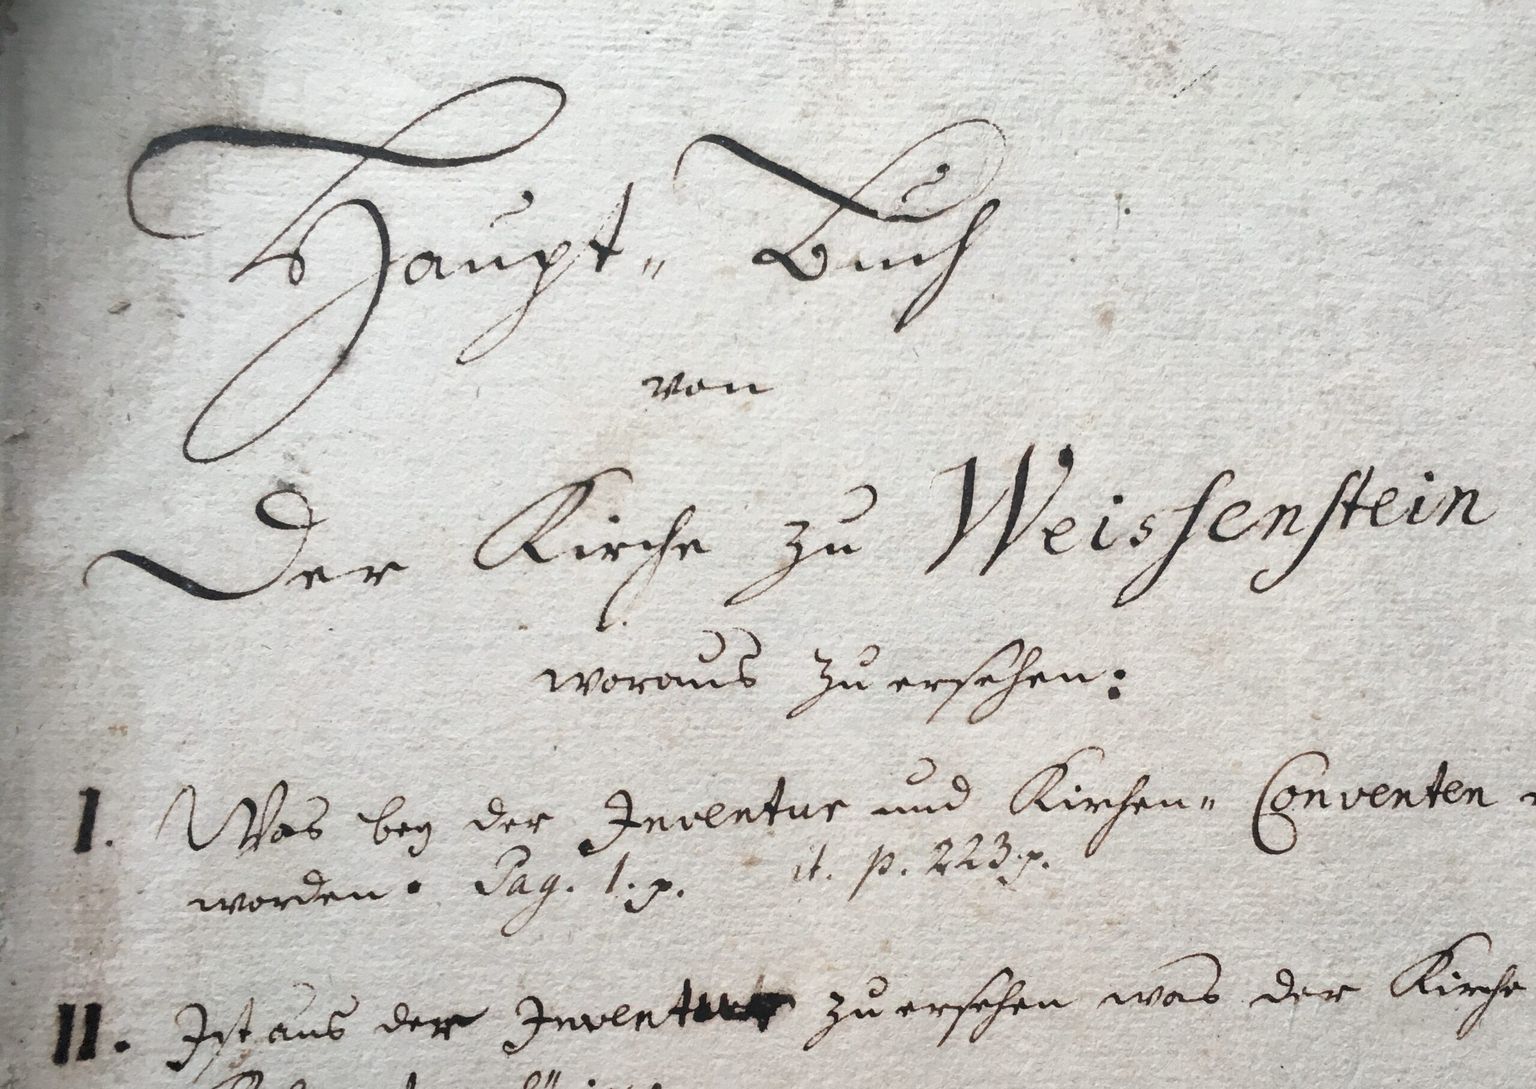 Haupt„ Buch
von
Der Kirche zu Weissenstein
woraus zu ersehen:
I. Was bey der Inventur und Kirchen„ Conventen
worden. Pag. 1. p. it. p. 223. p.
II. Ist aus der Inventur zu ersehen was der Kirche